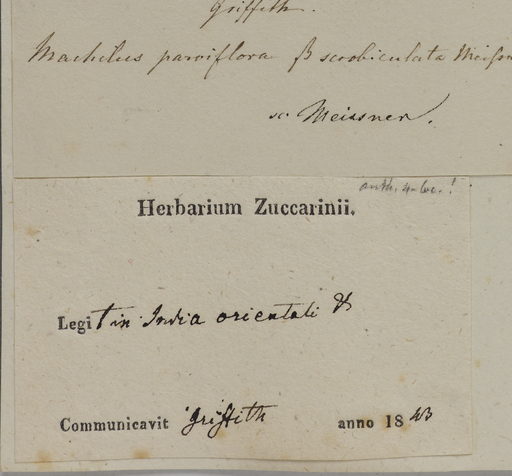 Griffith.
Machilus parviflora β scrobiculata Meissn
sc. Meissner.
anth. 4-loc.!
Herbarium Zuccarinii.
Legit in India orientali
Communicavit Griffith anno 1843